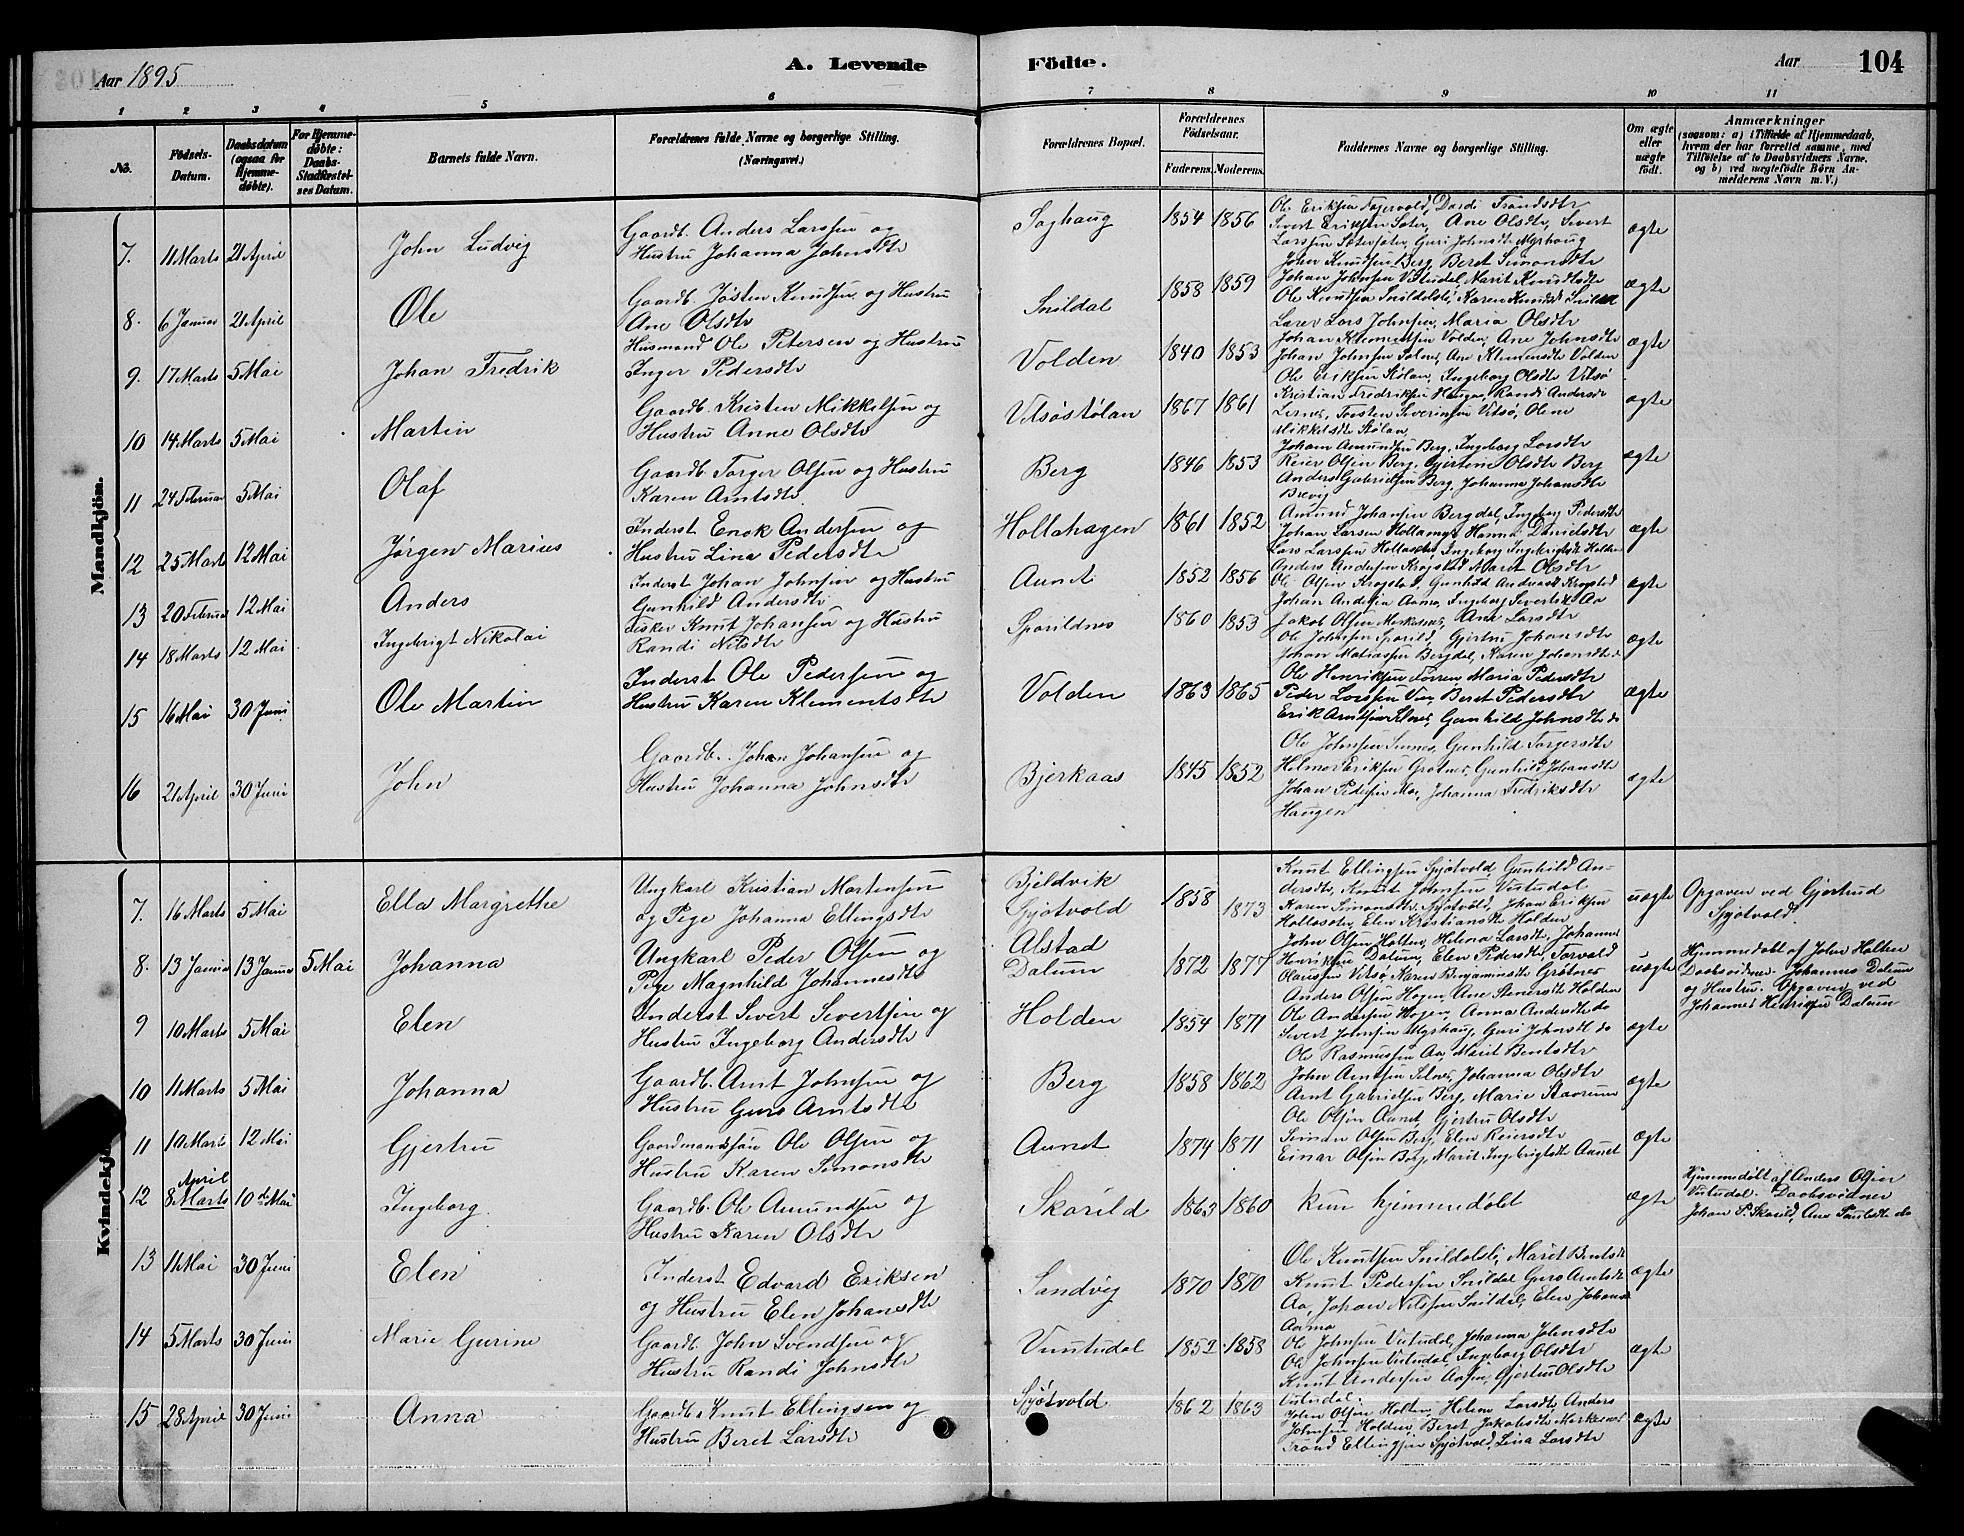 Aar 1895
A. Levende
Födte.
Aar
104
1 2 3 4 5 6 7 8 9 10 11
No.
Födsels-Datum.
Daabsdatum (ogsaa for Hjemme-döbte).
For Hjemme-döbte: Daabs-Stadfæstel-ses Datum.
Barnets fulde Navn.
Forældrenes fulde Navne og borgerlige Stilling. (Næringsvei.)
Forældrenes Bopæl.
Forældrenes Födselsaar.
Faderens. Moderens.
Faddernes Navne og borgerlige Stilling.
Om ægte eller uægte födt.
Anmærkninger
(saasom: a) i Tilfælde af Hjemmedaab, hvem der har forrettet samme, med Tilföielse af to Daabsvidners Navne, og b) ved uægtefödte Börn An-melderens Navn m. V.)
Mandkjön.
7. 11 Marts 21 April John Ludvig
Gaardb. Anders Larssen og
Hustru Johanna Johnsdtr
Saghaug 1854 1856
Ole Eriksen Fagervold, Dordi Trondsdtr
Sivert Eriksen Sæter, Ane Olsdtr, Sivert
Larssen Sætersæter, Guri Johnsdtr Myrhaug
ægte
8. 6 Januar 21 April Ole
Gaardb. Jøsten Knudsen og Hustru
Ane Olsdtr
Snildal 1858 1859
John Knudsen Berg, Beret Simonsdtr
Johan Johnsen Vistudal, Marit Knudsdtr
Ole Knudsen Snildalsli, Karen Knudsd Snildal
ægte
9. 17 Marts 5 Mai Johan Fredrik
Husmand Ole Petersen og Hustru
Inger Pedersdtr
Volden 1840 1853
Lærer Lars Johnsen, Maria Olsdtr
Johan Klemetsen Volden, Ane Johnsdtr
Johan Johnsen Selnes, Ane Klemensdtr Volden
ægte
10 14 Marts 5 Mai Martin
Gaardb. Kristen Mikkelsen og
Hustru Anne Olsdtr
Vitsøstølan 1867 1861
Ole Eriksen Stølan, Ingeborg Olsdtr Vitsø
Kristian Fredriksen Haugen, Randi Andersdr
Lernes, Torsten Severinsen Vitsø, Oline
Mikkelsdtr Stølan
ægte
11 24 Februar 5 Mai Olaf
Gaardb. Torger Olsen og Hustru
Karen Arntsdtr
Berg 1846 1853
Johan Amundsen Berg, Ingeborg Larsdtr
Reier Olsen Berg, Gjertine Olsdtr Berg
Anders Gabrielsen Berg, Johanna Johansdtr
Brevig
ægte
12 25 Marts 12 Mai Jørgen Marius
Inderst Enok Andersen og
Hustru Lina Pedersdtr
Hollahagen 1861 1852
Amund Johansen Bergdal, Ingeborg Pedersdtr
Johan Larsen Hollamyr, Hanna Danielsdtr
Lars Larssen Hollasæter, Ingeborg Ingebrigtsdtr Holten
ægte
13 20 Februar 12 Mai Anders
Inderst Johan Johnsen og Hustru
Gunhild Andersdtr
Aunet 1852 1856
Anders Andersen Krogstad, Marit Olsdtr
Ole Olsen Krogstad, Gunhild Andersdtr Krogstad
Johan Andersen Aamo, Ingeborg Sivertsdtr Aa
ægte
14 18 Marts 12 Mai Ingebrigt Nikolai
Fisker Knut Johansen og Hustru
Randi Nilsdtr
Sporildnes 1860 1853
Jakob Olsen Merkesnes, Ane Larsdtr
Ole Johnsen Sporild, Gjertru Johansdtr
Johan Matiassen Bergdal, Karen Johansdtr do
ægte
15 16 Mai 30 Juni Ole Martin
Inderst Ole Pedersen og
Hustru Karen Klementsdtr
Volden 1863 1865
Ole Henriksen Torren, Maria Pedersdtr
Peder Larssen Vin, Beret Pedersdtr
Erik Arntsen Selnes, Gunhild Johnsdtr do
ægte
16 21 April 30 Juni John
Gaardb. Johan Johansen og
Hustru Johanna Johnsdtr
Bjerkaas 1845 1852
Ole Johnsen Sinnes, Gunhild Torgersdtr
Helmer Eriksen Grotnes, Gunhild Johansdtr
Johan Pedersen Moe, Johanna Fredriksdtr
Haugen
ægte
Kvindekj
7. 16 Marts 5 Mai Ella Margrethe
Ungkarl Kristian Martensen
og Pige Johanna Ellingsdtr
Bjeldvik
Spjøtvold 1858 1873
Knut Ellingsen Spjøtvold, Gunhild An-
dersdtr, Knut Johnsen Vistudal
Karen Simonsdtr Spjøtvold, Johan Eriksen
Hollasæter, Elen Kristiansdtr Holden
uægte
Opgaven ved Gjertrud
Spjøtvold
8. 13 Januar 13 Januar 5 Mai Johanna
Ungkarl Peder Olsen og
Pige Magnhild Johannesdtr
Alstad
Dalum 1872 1877
John Olsen Holten, Helena Larsdtr, Johannes
Henriksen Dalum, Elen Pedersdtr, Torvald
Olaussen Vitsø, Karen Benjaminsdtr Grøtnes
uægte
Hjemmedøbt af John Holten
Daabsvidner Johannes Dalum
og Hustru. Opgaven ved
Johannes Henriksen Dalum
9 10 Marts 5 Mai Elen
Inderst Sivert Sivertsen og
Hustru Ingeborg Andersdtr
Holden 1854 1871
Anders Olsen Hogen, Ane Stenersdtr Holden
Ole Andersen Hogen, Anna Andersdtr do
Sivert Johnsen Myrhaug, Guri Johnsdt do
ægte
10 11 Marts 5 Mai Johanna
Gaardb. Arnt Johnsen og
Hustru Guro Arntsdtr
Berg 1858 1862
Ole Rasmussen Aa, Marit Bentsdtr
John Arntsen Selnes, Johanna Olsdtr
Arnt Gabrielsen Berg, Marie Stavrum
ægte
11 10 Marts 12 Mai Gjertru
Gaardmandssøn Ole Olsen og
Hustru Karen Simonsdtr
Aunet 1874 1871
Ole Olsen Aunet, Gjertru Olsdtr
Simon Olsen Berg, Elen Reiersdtr
Einar Olsen Berg, Marit Ingebrigtsdtr Aunet
ægte
12 April 8 Marts 10de Mai Ingeborg
Gaardb. Ole Amundsen og
Hustru Karen Olsdtr
Skarild 1863 1860
kun hjemmedøbt
ægte
Hjemmedøbt af Anders Olsen
Vistudal. Daabsvidner
Johan P. Skarild, Ane Paulsdtr do
13 11 Mai 30 Juni Elen
Inderst Edvard Eriksen
og Hustru Elen Johansdtr
Sandvig 1870 1870
Ole Knutsen Snildalsli, Marit Bentsdt
Knut Pedersen Snildal, Guro Arntsdt
Aa, Johan Nilssen Snildal, Elen Johansd
Aamo
ægte
14 5 Marts 30 Juni Marie Gurine
Gaardb. John Svendsen og
Hustru Randi Johnsdtr
Vuttudal 1852 1858
Ole Johnsen Vistudal, Johanna Johnsdtr
Ole Johnsen Vistudal, Ingeborg Olsdtr
Knut Andersen Aasen, Gjertru Olsdtr
Vistudal.
ægte
15 28 April 30 Juni Anna
Gaardb. Knut Ellingsen og
Hustru Beret Larsdtr
Spjøtvold 1862 1863
John Olsen Holten, Helena Larsdtr, Anders
Johnsen Holden, Beret Jakobsdtr Merkesnes
Trond Ellingsen Spjøtvold, Lina Larsdtr
ægte